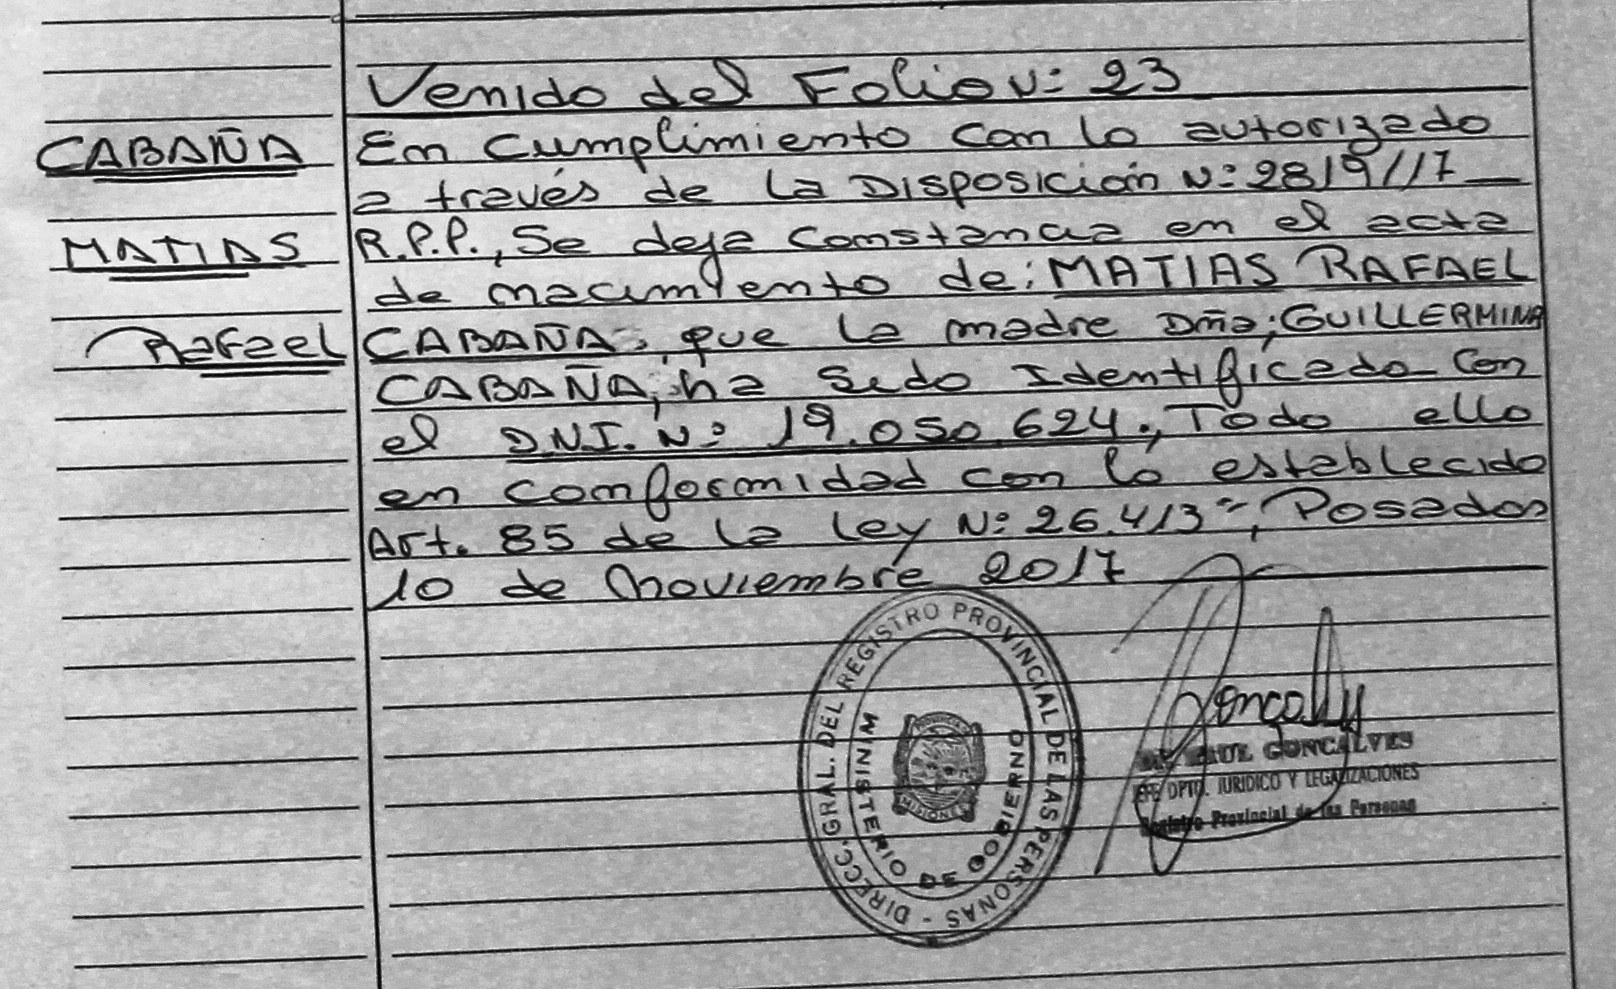 Venido del Folio N: 23
CABAÑA
En cumplimiento con lo autorizado
a través de la Disposición N: 2819/17
MATIAS
R.P.P., Se deja constancia en el acta
de nacimiento de: MATIAS RAFAEL
Rafael
CABAÑA, que la madre Dña; GUILLERMINA
CABAÑA, ha sido Identificada con
el DNI. Nº 19.050.624., Todo ello
en conformidad con lo establecido
Art. 85 de la Ley Nº 26.413", Posadas
10 de noviembre 2017
DIRECC. GRAL. DEL REGISTRO PROVINCIAL DE LAS PERSONAS -
MINISTERIO DE GOBIERNO
PROVINCIA
MISIONES
Goncalv
GONCALVES
JEFE DPTO. JURIDICO Y LEGALIZACIONES
Registro Provincial de las Personas